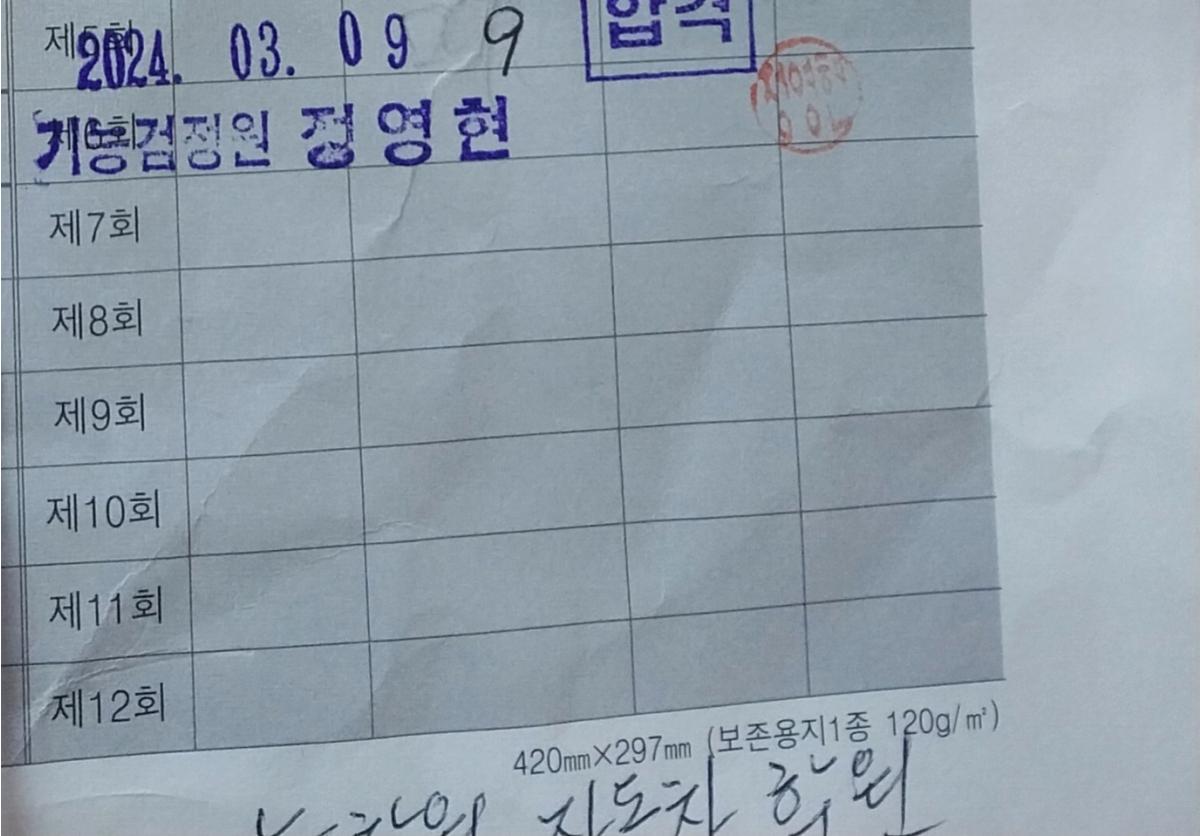 제5회 2024. 03. 09 9 합격
제6회 기능검정원 정영현
제7회
제8회
제9회
제10회
제11회
제12회
420㎜×297㎜ (보존용지1종 120g/㎡)
자동차 학원